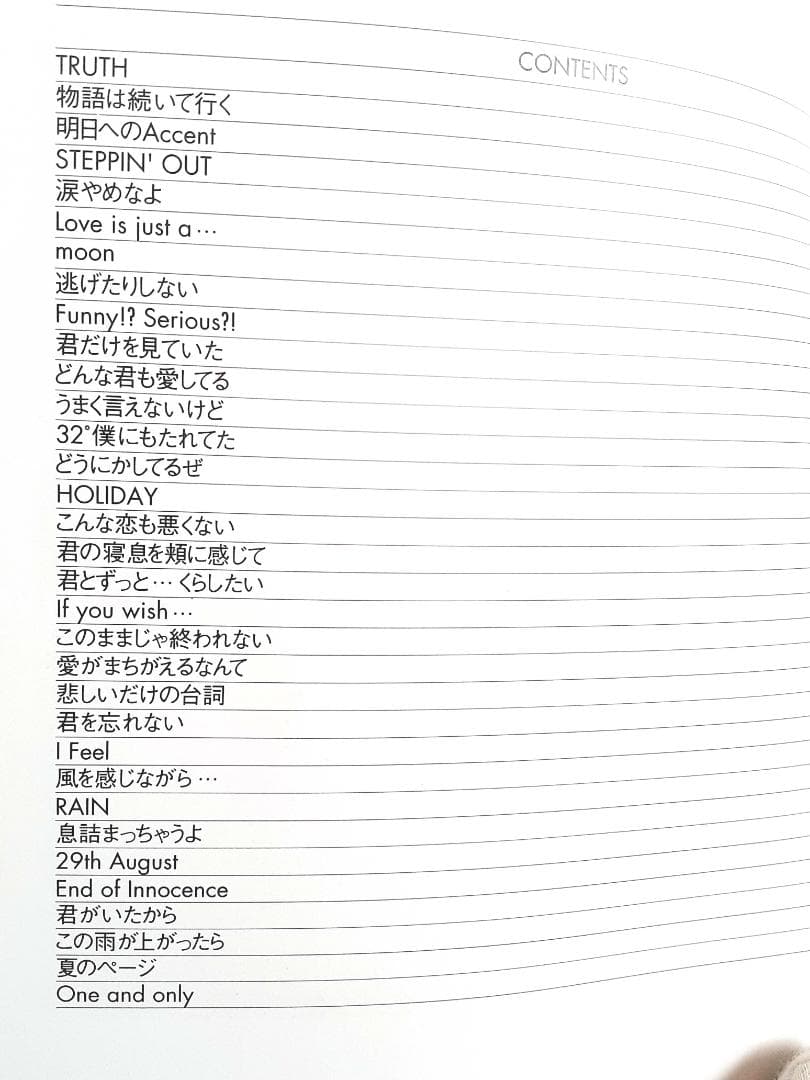 CONTENTS
TRUTH
物語は続いて行く
明日へのAccent
STEPPIN' OUT
涙やめなよ
Love is just a…
moon
逃げたりしない
Funny!? Serious?!
君だけを見ていた
どんな君も愛してる
うまく言えないけど
32°僕にもたれてた
どうにかしてるぜ
HOLIDAY
こんな恋も悪くない
君の寝息を頬に感じて
君とずっと…くらしたい
If you wish…
このままじゃ終われない
愛がまちがえるなんて
悲しいだけの台詞
君を忘れない
I Feel
風を感じながら…
RAIN
息詰まっちゃうよ
29th August
End of Innocence
君がいたから
この雨が上がったら
夏のページ
One and only